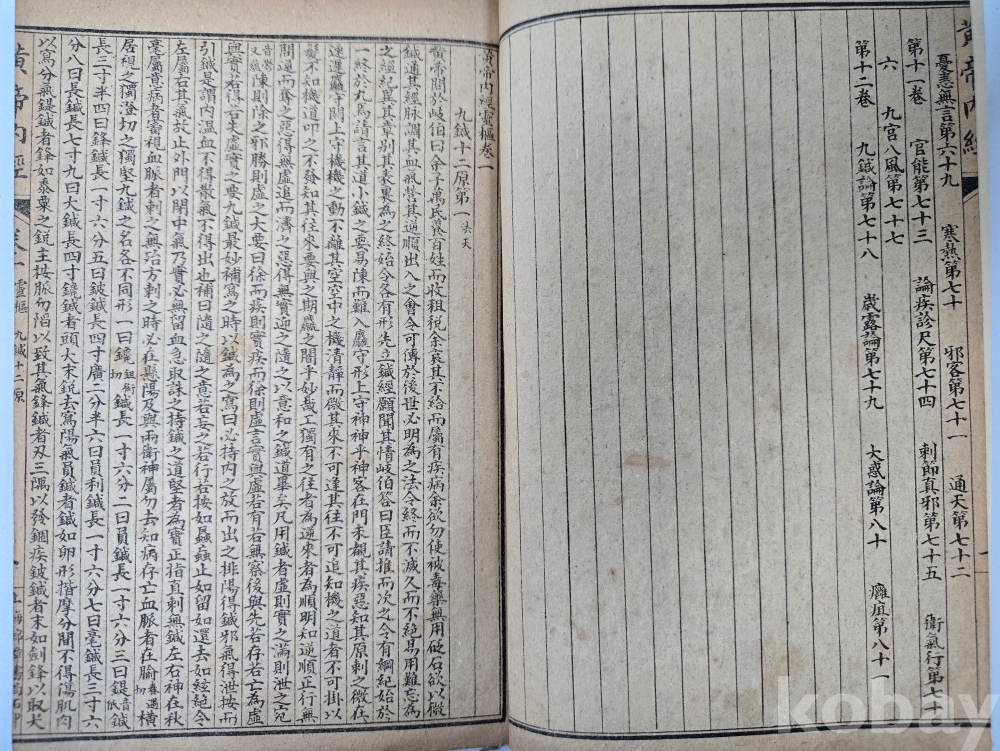 黃帝內經
憂恚無言第六十九　寒熱第七十　邪客第七十一　通天第七十二
第十一卷　官能第七十三　論疾診尺第七十四　刺節真邪第七十五　衛氣行第七十
六　九宮八風第七十七
第十二卷　九鍼論第七十八　歲露論第七十九　大惑論第八十　癰疽第八十一
黃帝內經靈樞卷一
九鍼十二原第一 法天
黃帝問於歧伯曰余子萬民養百姓而收租稅余哀其不給而屬有疾病余欲勿使被毒藥無用砭石欲以微
鍼通其經脈調其血氣營其逆順出入之會令可傳於後世必明為之法令終而不滅久而不絕易用難忘為
之經紀異其章別其表裏為之終始令各有形先立鍼經願聞其情歧伯答曰臣請推而次之令有綱紀始於
一終於九焉請言其道小鍼之要易陳而難入麤守形上守神神乎神客在門未覩其疾惡知其原刺之微在
速遲麤守關上守機機之動不離其空空中之機清靜而微其來不可逢其往不可追知機之道者不可掛以
髮不知機道叩之不發知其往來要與之期麤之闇乎妙哉工獨有之往者為逆來者為順明知逆順正行無
問迎而奪之惡得無虛追而濟之惡得無實迎之隨之以意和之鍼道畢矣凡用鍼者虛則實之滿則泄之宛
陳則除之邪勝則虛之大要曰徐而疾則實疾而徐則虛言實與虛若有若無察後與先若存若亡為虛
與實若得若失虛實之要九鍼最妙補寫之時以鍼為之寫曰必持內之放而出之排陽得鍼邪氣得泄按而
引鍼是謂內溫血不得散氣不得出也補曰隨之隨之意若妄之若行若按如蟁蝱止如留如還去如絃絕令
左屬右其氣故止外門以閉中氣乃實必無留血急取誅之持鍼之道堅者為寶正指直刺無鍼左右神在秋
毫屬意病者審視血脈者刺之無殆方刺之時必在懸陽及與兩衛神屬勿去知病存亡血脈者在腧橫
居視之獨澄切之獨堅九鍼之名各不同形一曰鑱鍼長一寸六分二曰員鍼長一寸六分三曰鍉鍼
長三寸半四曰鋒鍼長一寸六分五曰鈹鍼長四寸廣二分半六曰員利鍼長一寸六分七曰毫鍼長三寸六
分八曰長鍼長七寸九曰大鍼長四寸鑱鍼者頭大末銳去寫陽氣員鍼者鍼如卵形揩摩分間不得傷肌肉
以寫分氣鍉鍼者鋒如黍粟之銳主按脈勿陷以致其氣鋒鍼者刃三隅以發錮疾鈹鍼者末如劍鋒以取大
黃帝內經　卷一　靈樞　九鍼十二原
kobay